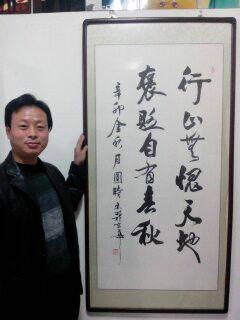 行止無愧天地
褒貶自有春秋
辛卯金秋月圓時